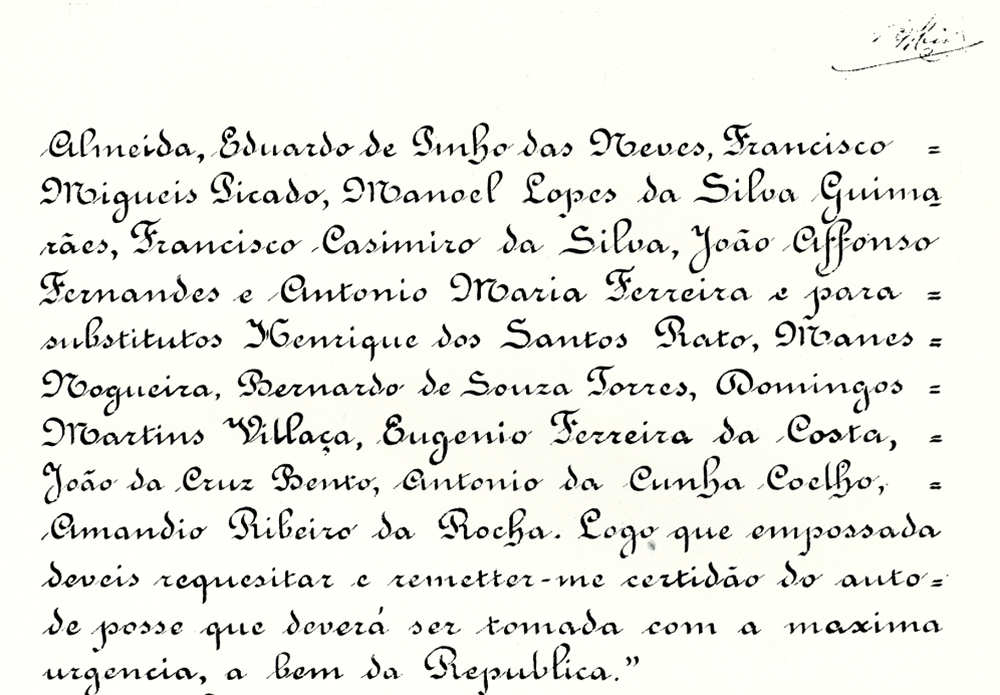 Almeida, Eduardo de Pinho das Neves, Francisco =
Migueis Picado, Manoel Lopes da Silva Guima
rães, Francisco Casimiro da Silva, João Affonso
Fernandes e Antonio Maria Ferreira e para =
substitutos Henrique dos Santos Rato, Manes =
Nogueira, Bernardo de Souza Torres, Domingos =
Martins Villaça, Eugenio Ferreira da Costa, =
João da Cruz Bento, Antonio da Cunha Coelho, =
Amandio Ribeiro da Rocha. Logo que empossada
deveis requesitar e remetter-me certidão do auto =
de posse que deverá ser tomada com a maxima
urgencia, a bem da Republica."